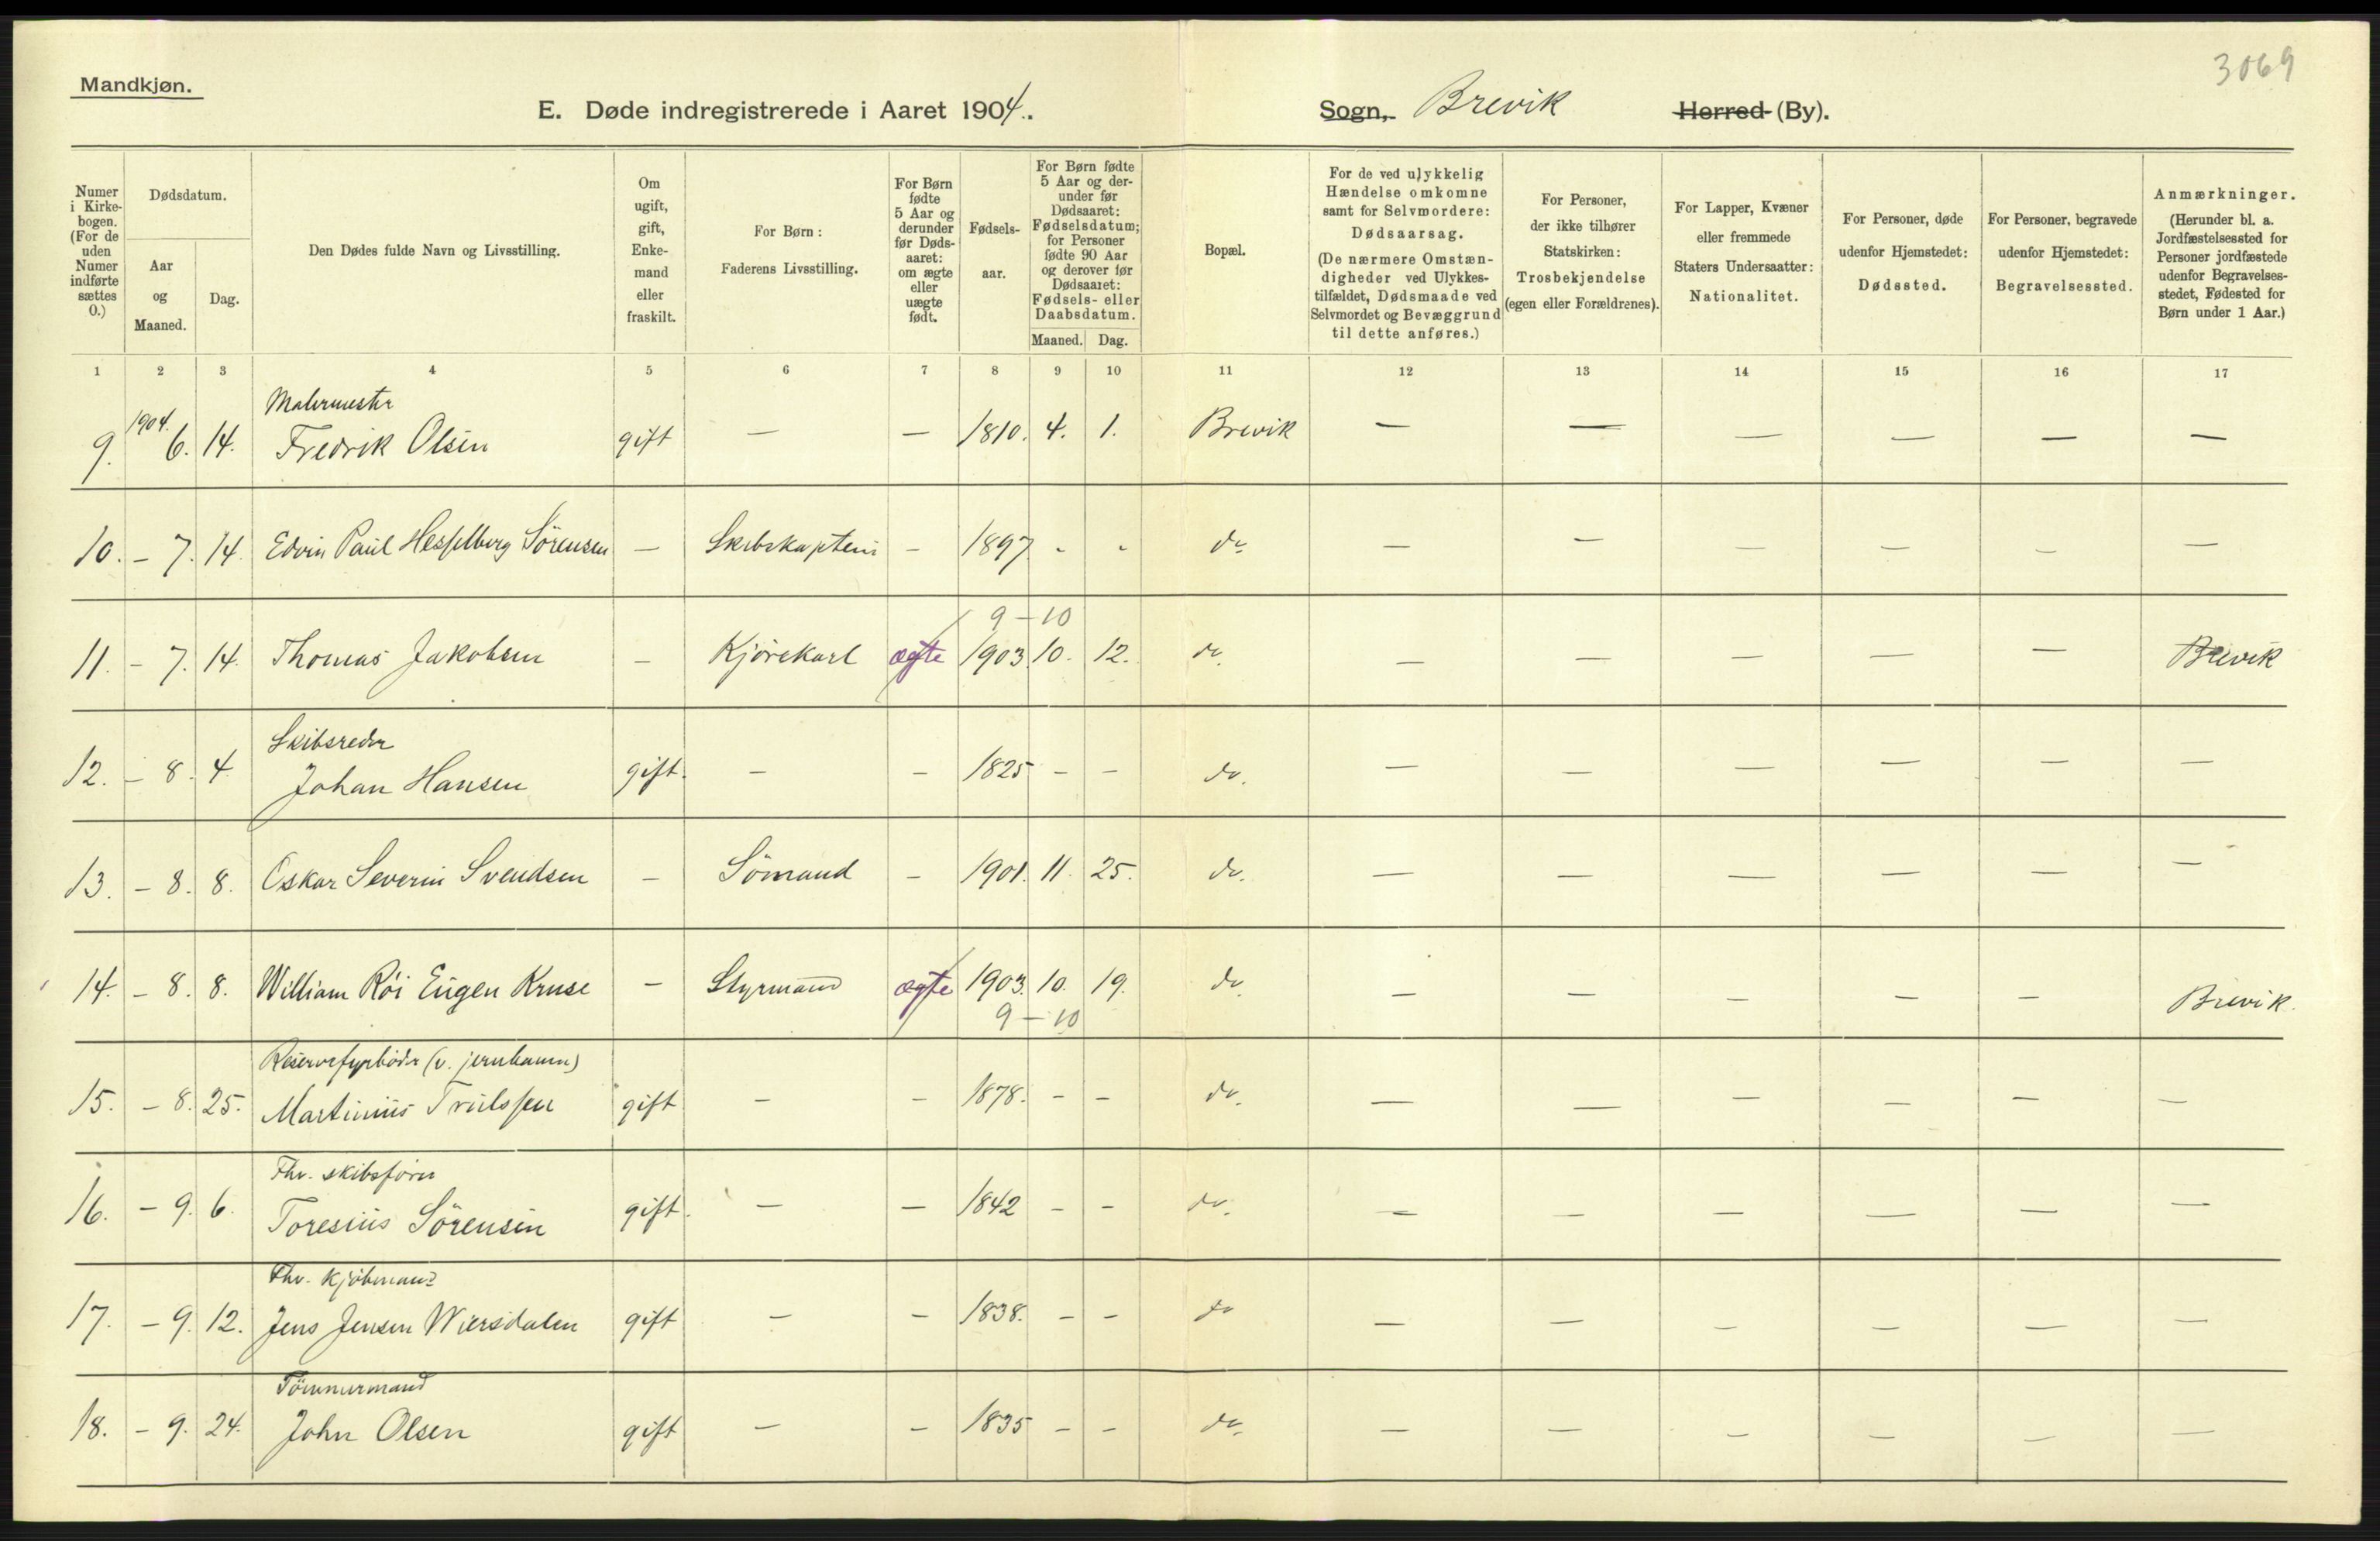 3069
Mandkjøn.
E. Døde indregistrerede i Aaret 1904. Sogn, Brevik Herred (By).
Numer i Kirkebogen. (For de uden Numer indførte sættes 0.)
Dødsdatum.
Aar og Maaned.
Dag.
Den Dødes fulde Navn og Livsstilling.
Om ugift, gift, Enkemand eller fraskilt.
For Børn: Faderens Livsstilling.
For Børn fødte 5 Aar og derunder før Dødsaaret: om ægte eller uægte født.
Fødselsaar.
For Børn fødte 5 Aar og derunder før Dødsaaret: Fødselsdatum; for Personer fødte 90 Aar og derover før Dødsaaret: Fødsels- eller Daabsdatum.
Maaned. Dag.
Bopæl.
For de ved ulykkelig Hændelse omkomne samt for Selvmordere: Dødsaarsag. (De nærmere Omstændigheder ved Ulykkestilfældet, Dødsmaade ved Selvmordet og Bevæggrund til dette anføres.)
For Personer, der ikke tilhører Statskirken: Trosbekjendelse (egen eller Forældrenes).
For Lapper, Kvæner eller fremmede Staters Undersaatter: Nationalitet.
For Personer, døde udenfor Hjemstedet: Dødssted.
For Personer, begravede udenfor Hjemstedet: Begravelsessted.
Anmærkninger. (Herunder bl. a. Jordfæstelsessted for Personer jordfæstede udenfor Begravelsesstedet, Fødested for Børn under 1 Aar.)
1 2 3 4 5 6 7 8 9 10 11 12 13 14 15 16 17
Malermester
9. 1904. 6. 14. Fredrik Olsen gift — — 1810. 4. 1. Brevik — — — — — —
10. - 7. 14. Edvin Paul Hesselberg Sörensen — Skibskaptein - 1897 - - do — — — — — —
9 - 10
11. - 7. 14. Thomas Jakobsen — Kjörekarl ægte 1903. 10. 12. do. — — — — — Brevik
Skibsreder
12. - 8. 4. Johan Hansen gift. — — 1825 - - do. — — — — — —
13. - 8. 8. Oskar Severin Svendsen — Sömand - 1901. 11. 25. do. — — — — — —
14. - 8. 8. William Röi Eugen Kruse — Styrmand ægte 1903. 10. 19. do. — — — — — Brevik.
9 - 10
Reservefyrböder (v. jernbanen)
15. - 8. 25. Martinius Trulssen gift — — 1878. - - do. — — — — — —
Fhv. skibsförer
16. - 9. 6. Toresius Sörensen gift. — — 1842 - - do. — — — — — —
Fhv. Kjöbmand
17. - 9. 12. Jens Jensen Wiersdalen gift — — 1838. - - do — — — — — —
Tömmermand
18. - 9. 24. John Olsen gift — — 1835 - - do. — — — — — —